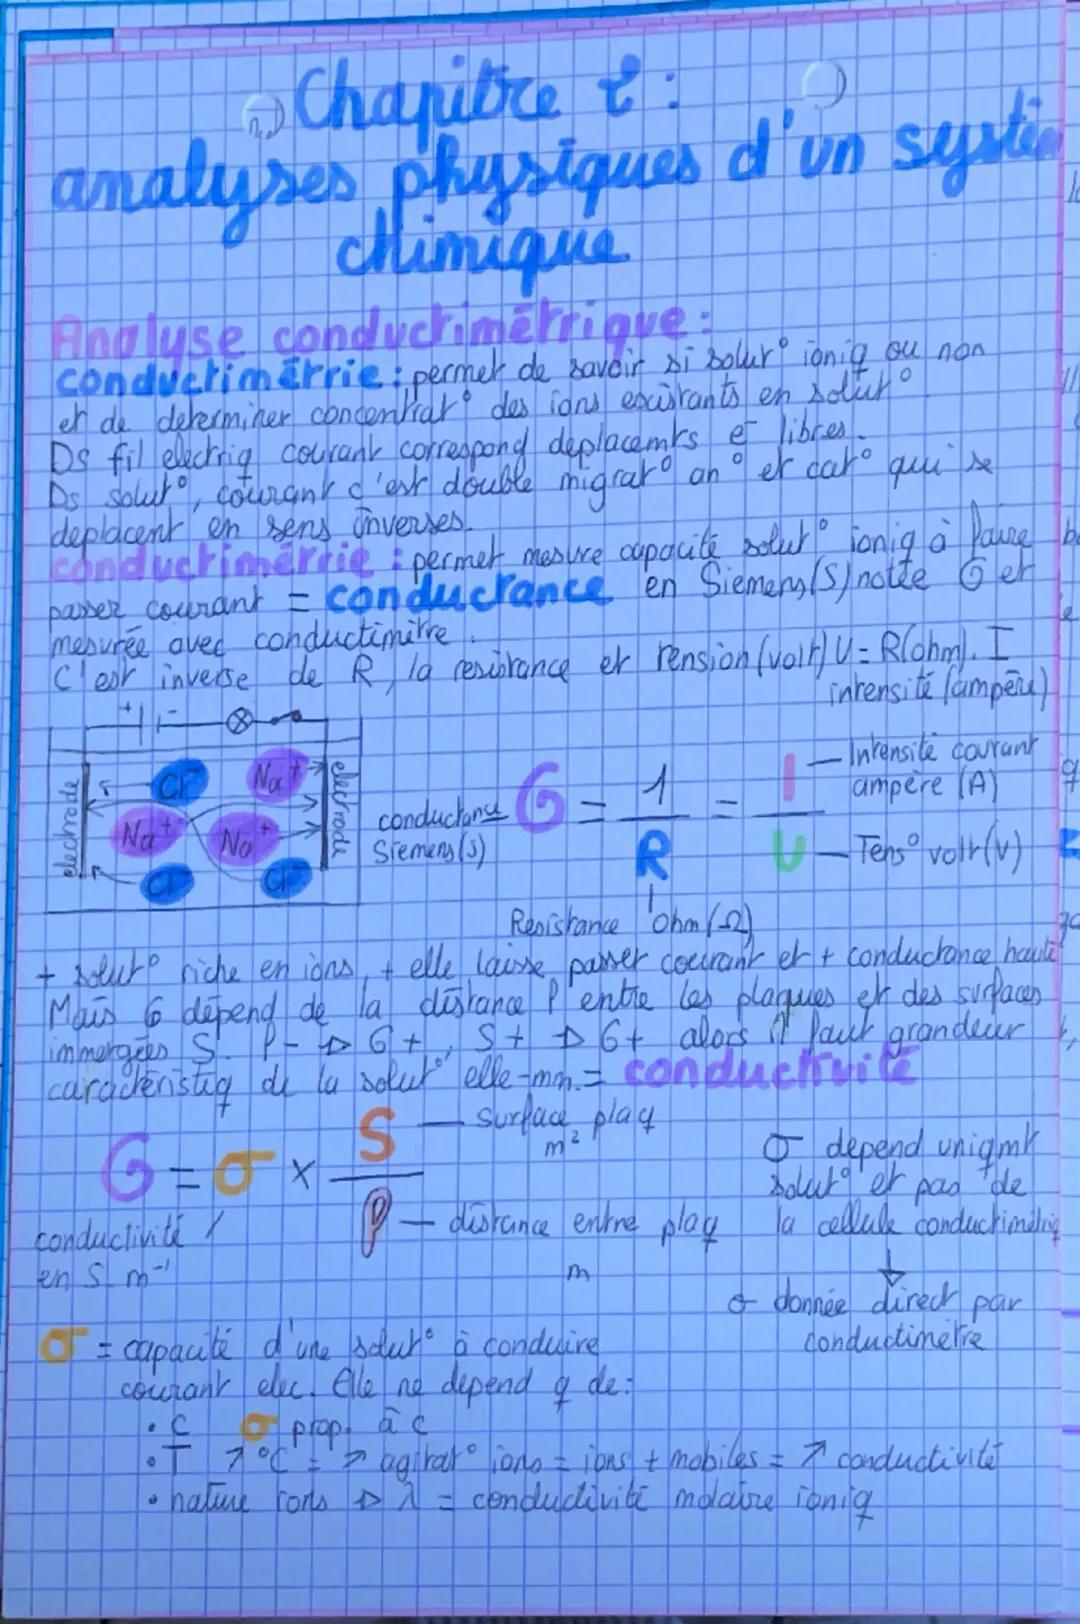 Chapitre 2 :
analyses physiques d'un systèm
chimique
Analyse conductimétrique :
conductimétrie : permet de savoir si solut° ioniq ou non
et de determiner concentrat° des ions existants en solut°
Ds fil electriq courant correspond deplacemts e- libres.
Ds solut°, courant c'est double migrat° an° et cat° qui se
deplacent en sens inverses.
conductimétrie : permet mesure capacité solut° ioniq à faire
passer courant = conductance en Siemens (S) notée G et
mesurée avec conductimètre.
C'est inverse de R, la resistance et tension (volt) U = R(ohm). I
intensité (ampère)
+ -
Cl- Na+
electrode Na+ Na+ electrode
Cl- Cl-
conductance Siemens (S) G = 1/R = I/U
Intensité courant ampère (A)
Tens° volt (V)
Resistance ohm (Ω)
+ solut° riche en ions, + elle laisse passer courant et + conductance haute
Mais G dépend de la distance l entre les plaques et des surfaces
immergées S. l- ⇒ G+, S+ ⇒ G+ alors il faut grandeur
caractéristiq de la solut° elle-mm. = conductivité
G = σ × S/l
surface plaq m²
distance entre plaq
m
conductivité
en S. m⁻¹
σ depend uniqmt
solut° et pas de
la cellule conductimétriq
↓
σ donnée direct par
conductimètre
σ = capacité d'une solut° à conduire
courant elec. Elle ne depend q de :
• C σ prop. à c
• T ↗ °C = ↗ agitat° ions = ions + mobiles = ↗ conductivité
• nature ions ⇒ λ = conductivité molaire ioniq